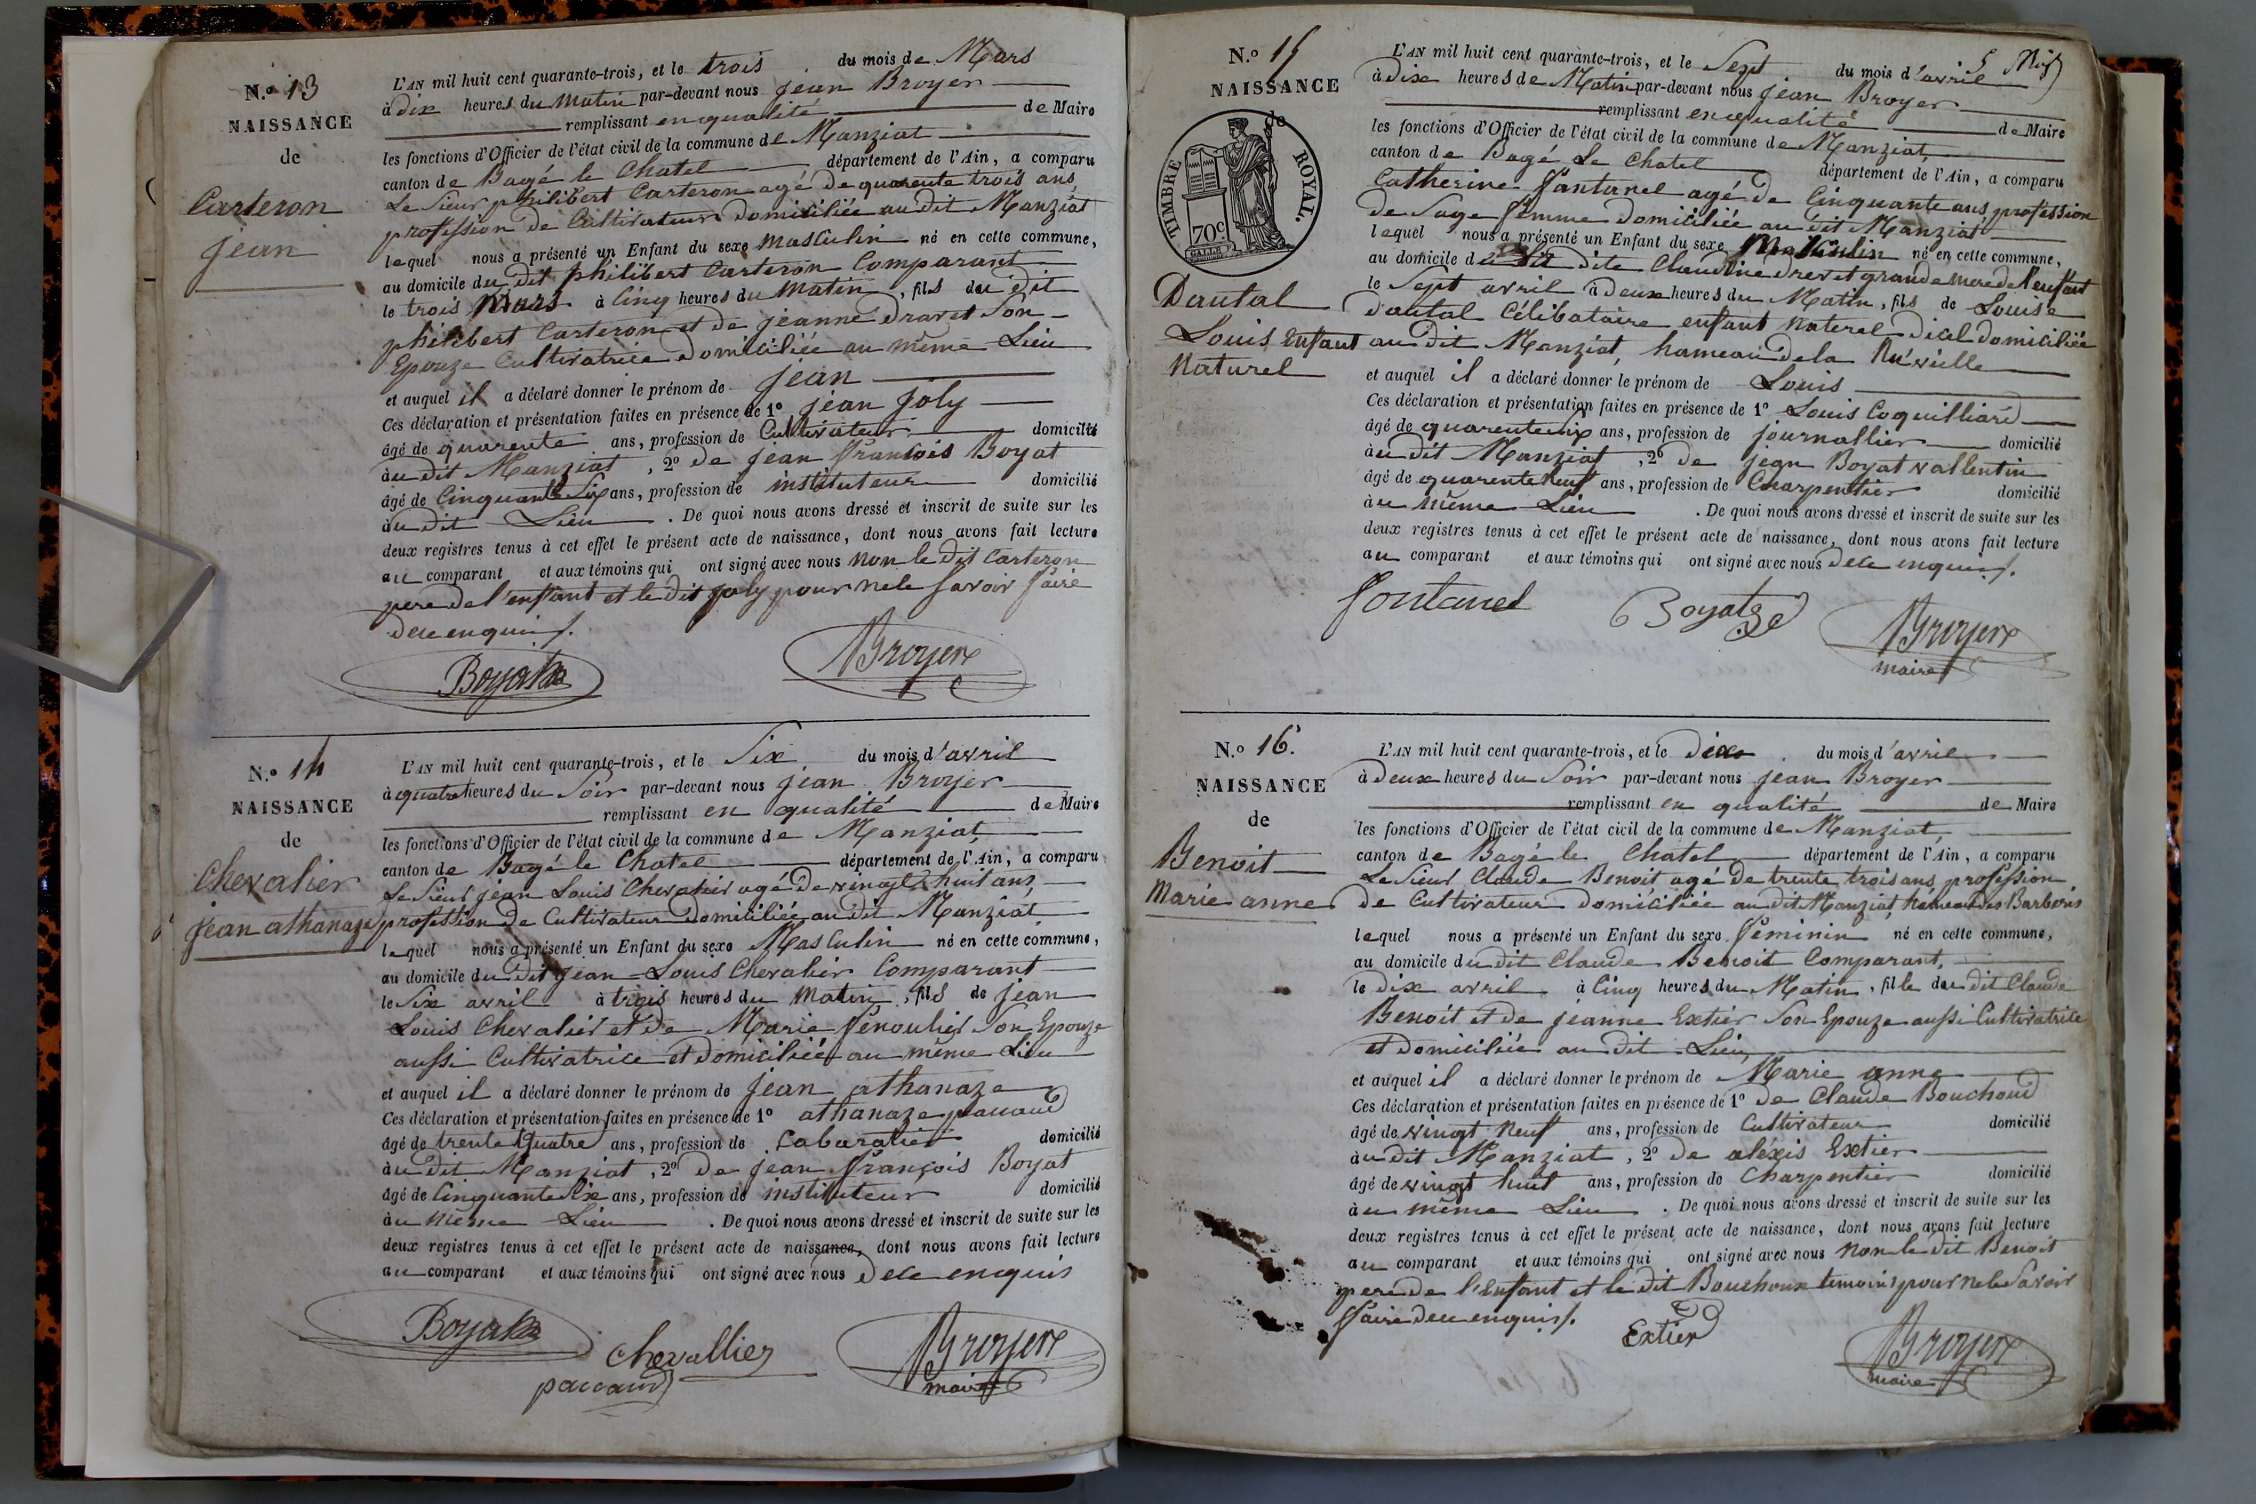 N.o 13
NAISSANCE
de
Carteron
jean
L'AN mil huit cent quarante-trois, et le trois du mois de Mars
à dix heures du matin par-devant nous jean Broyer
remplissant en qualité de Maire
les fonctions d'Officier de l'état civil de la commune de Manziat
canton de Bagé le Chatel département de l'Ain, a comparu
Le Sieur philibert Carteron agé de quarente trois ans
profession de Cultivateur domiciliée au dit Manziat
lequel nous a présenté un Enfant du sexe masculin né en cette commune,
au domicile du dit philibert Carteron Comparant
le trois Mars à Cinq heures du matin, fils du dit
philibert Carteron et de jeanne dravet Son
Epouze Cultivatrice domiciliée au même Lieu
et auquel il a déclaré donner le prénom de jean
Ces déclaration et présentation faites en présence de 1o jean joly
âgé de quarente ans, profession de Cultivateur domicilié
au dit Manziat, 2o de jean françois Boyat
âgé de Cinquante Six ans, profession de instituteur domicilié
au dit Lieu. De quoi nous avons dressé et inscrit de suite sur les
deux registres tenus à cet effet le présent acte de naissance, dont nous avons fait lecture
au comparant et aux témoins qui ont signé avec nous non le dit Carteron
pere de l'enfant et le dit joly pour ne le savoir faire
de ce enquis.
Boyat
Broyer
N.o 14
NAISSANCE
de
Chevalier
jean athanaze
L'AN mil huit cent quarante-trois, et le Six du mois d'avril
à quatre heures du Soir par-devant nous jean Broyer
remplissant en qualité de Maire
les fonctions d'Officier de l'état civil de la commune de Manziat
canton de Bagé le Chatel département de l'Ain, a comparu
Le Sieur jean Louis Chevalier agé de vingt huit ans
profession de Cultivateur domiciliée au dit Manziat
lequel nous a présenté un Enfant du sexe Masculin né en cette commune,
au domicile du dit jean Louis Chevalier Comparant
le Six avril à trois heures du matin, fils de jean
Louis Chevalier et de Marie fenoulier Son Epouze
aussi Cultivatrice et domiciliée au même Lieu
et auquel il a déclaré donner le prénom de jean athanaze
Ces déclaration et présentation faites en présence de 1o athanaze pauaud
âgé de trente quatre ans, profession de Cabaratier domicilié
au dit Manziat, 2o de jean françois Boyat
âgé de Cinquante Six ans, profession de instituteur domicilié
au même Lieu. De quoi nous avons dressé et inscrit de suite sur les
deux registres tenus à cet effet le présent acte de naissance, dont nous avons fait lecture
au comparant et aux témoins qui ont signé avec nous de ce enquis
Boyat
Chevallier
paccaud
Broyer
maire
N.o 15
NAISSANCE
de
TIMBRE ROYAL.
70c
Dautal
Louis Enfant
Naturel
L'AN mil huit cent quarante-trois, et le Sept du mois d'avril
à dix heures de Matin par-devant nous jean Broyer
remplissant en qualité de Maire
les fonctions d'Officier de l'état civil de la commune de Manziat
canton de Bagé Le Chatel département de l'Ain, a comparu
Catherine fantanel agé de Cinquante ans profession
de Sage femme domiciliée au dit Manziat
lequel nous a présenté un Enfant du sexe Masculin né en cette commune,
au domicile de la dite Claudine drevet grande mere de l'enfant
le Sept avril à deux heures du Matin, fils de Louise
dautal Célibataire enfant naturel d'icel domiciliée
au dit Manziat, hameau de la
et auquel il a déclaré donner le prénom de Louis
Ces déclaration et présentation faites en présence de 1o Louis Coquilliard
âgé de quarente six ans, profession de journallier domicilié
au dit Manziat, 2o de jean Boyat vallentin
âgé de quarente neuf ans, profession de Charpentier domicilié
au même Lieu. De quoi nous avons dressé et inscrit de suite sur les
deux registres tenus à cet effet le présent acte de naissance, dont nous avons fait lecture
au comparant et aux témoins qui ont signé avec nous de ce enquis.
fontanel
Boyat
Broyer
maire
N.o 16.
NAISSANCE
de
Benoit
Marie anne
L'AN mil huit cent quarante-trois, et le dix du mois d'avril
à deux heures du Soir par-devant nous jean Broyer
remplissant en qualité de Maire
les fonctions d'Officier de l'état civil de la commune de Manziat
canton de Bagé le Chatel département de l'Ain, a comparu
Le Sieur Claude Benoit agé de trente trois ans profession
de Cultivateur domiciliée au dit Manziat, hameau des Barberis
lequel nous a présenté un Enfant du sexe féminin né en cette commune,
au domicile du dit Claude Benoit Comparant,
le dix avril à Cinq heures du Matin, fille du dit Claude
Benoit et de jeanne Extier Son Epouze aussi Cultivatrice
et domiciliée au dit Lieu
et auquel il a déclaré donner le prénom de Marie anne
Ces déclaration et présentation faites en présence de 1o de Claude Bouchoud
âgé de vingt neuf ans, profession de Cultivateur domicilié
au dit Manziat, 2o de aléxis Extier
âgé de vingt huit ans, profession de Charpentier domicilié
au même Lieu. De quoi nous avons dressé et inscrit de suite sur les
deux registres tenus à cet effet le présent acte de naissance, dont nous avons fait lecture
au comparant et aux témoins qui ont signé avec nous non le dit Benoit
pere de l'enfant et le dit Bouchoux temoins pour ne le savoir
faire de ce enquis.
Extier
Broyer
maire